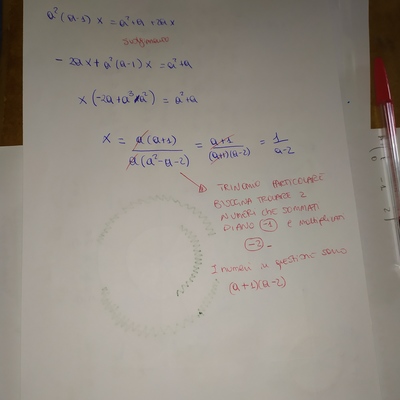 a²(a-1)x = a²+a+2ax
- 2ax+a²(a-1)x = a²+a
x(-2a+a³-a²) = a²+a
x = a(a+1) / a(a²-a-2) = a+1 / (a+1)(a-2) = 1 / a-2
TRINOMIO PARTICOLARE
BISOGNA TROVARE 2
NUMERI CHE SOMMATI
DIANO -1 e moltiplicati
-2-
I numeri in questione sono
(a+1)(a-2)